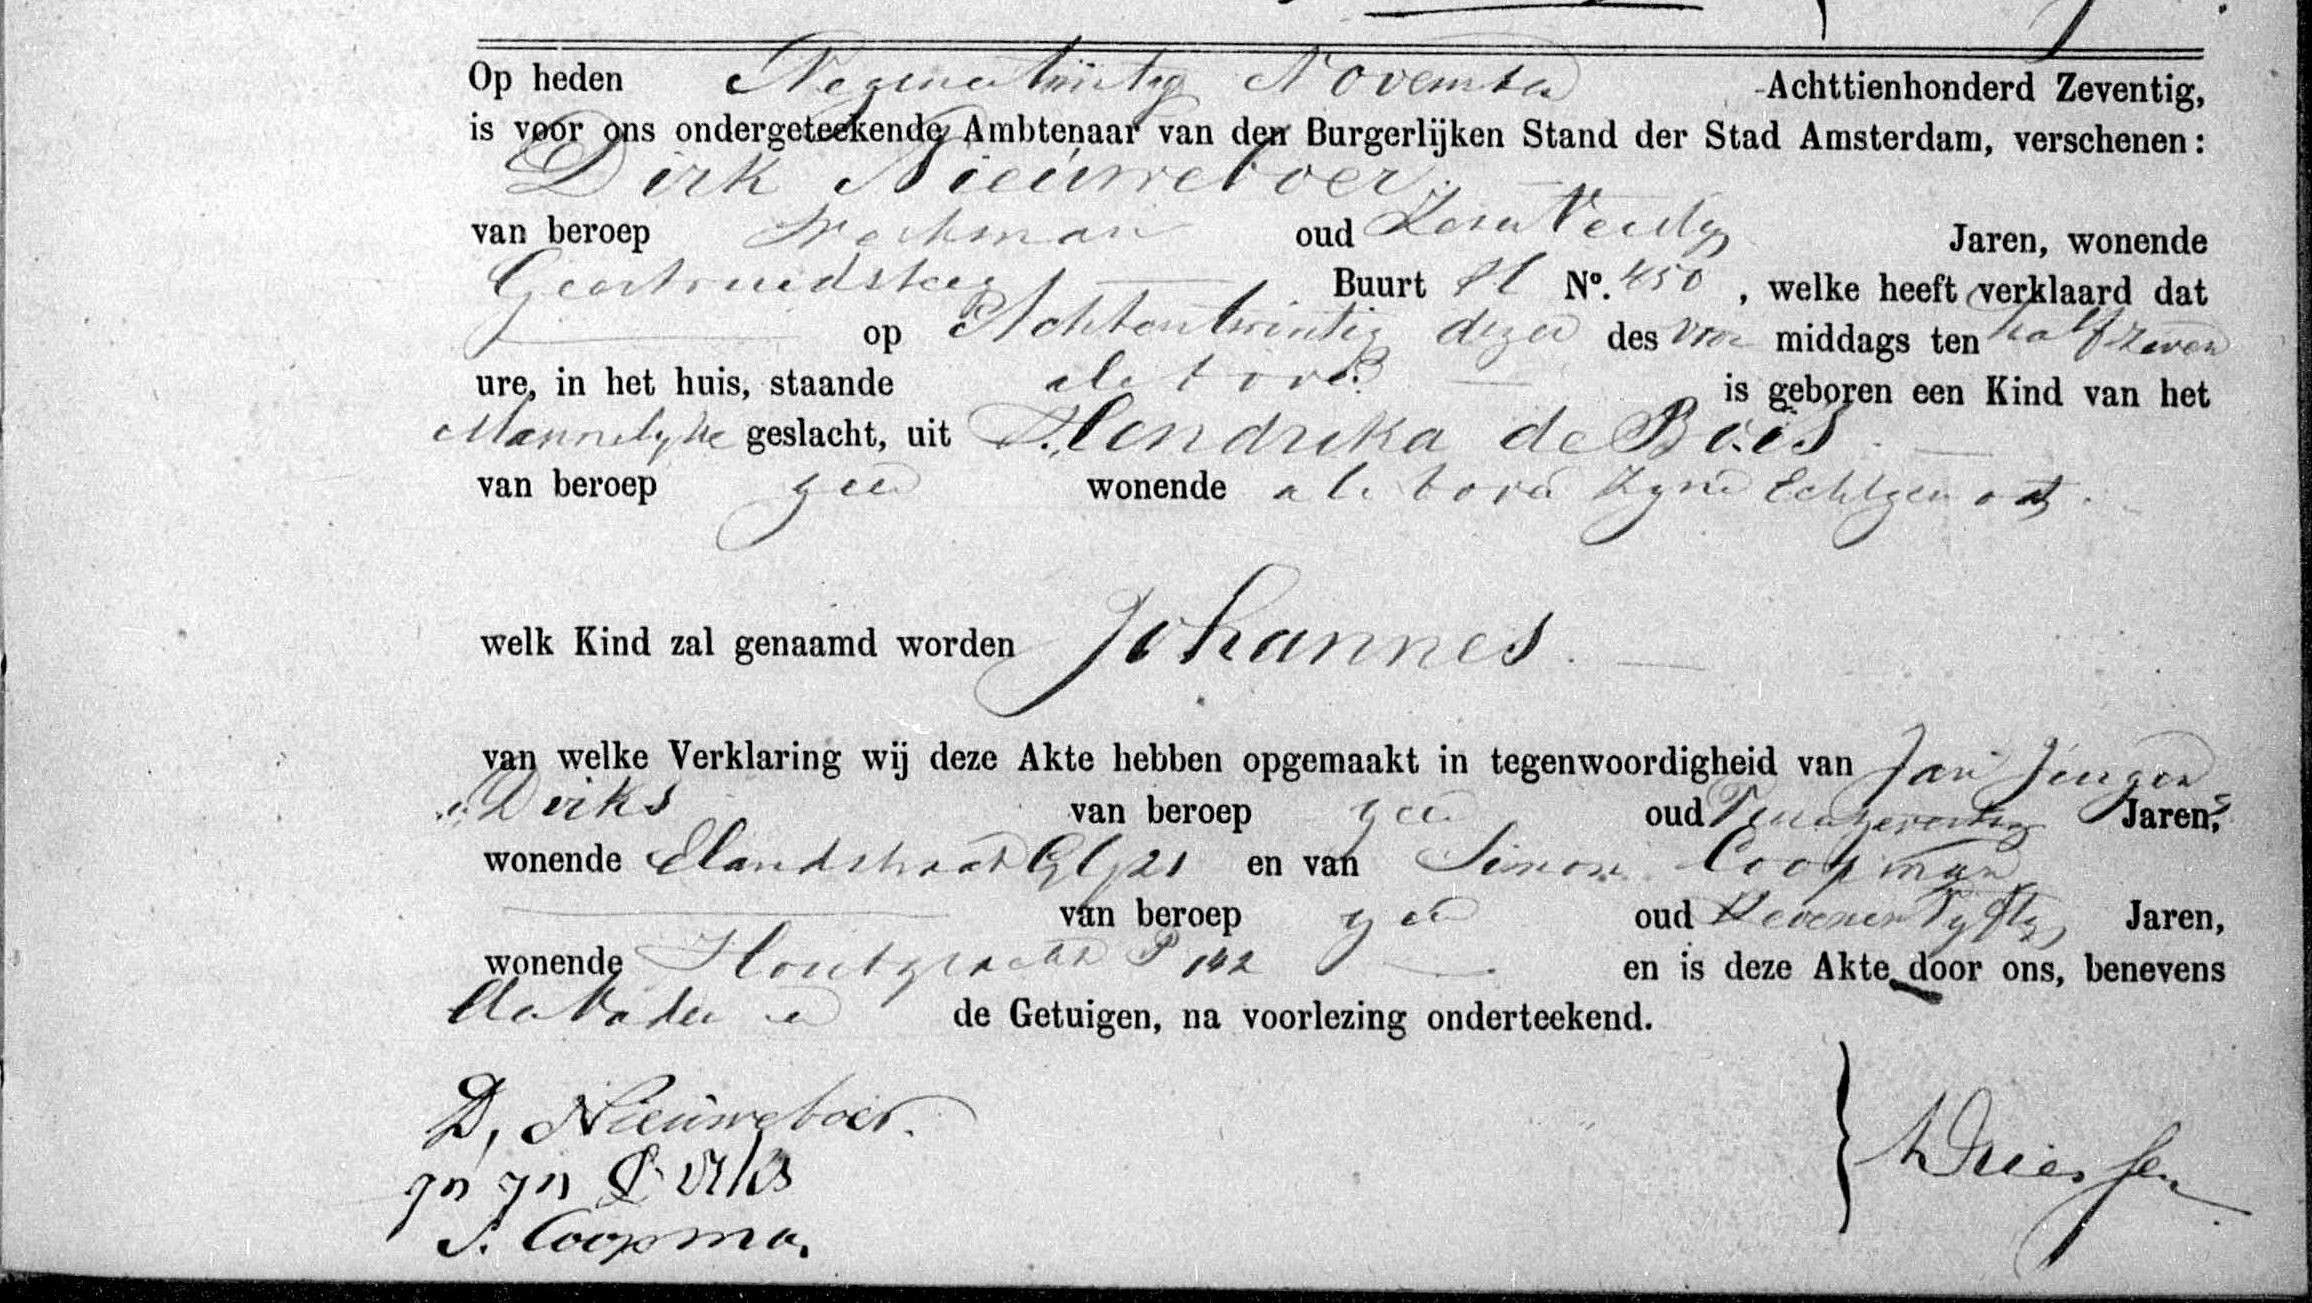 Op heden Negenentwintig November Achttienhonderd Zeventig,
is voor ons ondergeteekende Ambtenaar van den Burgerlijken Stand der Stad Amsterdam, verschenen:
Dirk Nieuweboer.
van beroep Werkman oud Jaren, wonende
Geertruidsteeg Buurt N°. 450, welke heeft verklaard dat
op Achtentwintig dezer des voor middags ten half zeven
ure, in het huis, staande als boven is geboren een Kind van het
Mannelyke geslacht, uit Hendrika de Bois.
van beroep geen wonende als boven zyne Echtgenoot.
welk Kind zal genaamd worden Johannes.
van welke Verklaring wij deze Akte hebben opgemaakt in tegenwoordigheid van Jan Jurgen
Dirks van beroep geen oud Jaren,
wonende Elandstraat 21 en van Simon Coopman
van beroep geen oud Zevenenvyftig Jaren,
wonende Houtgracht P 142 en is deze Akte door ons, benevens
de Vader en de Getuigen, na voorlezing onderteekend.
D, Nieuweboer.
Jn Jn Dirks
S. Coopman.
Driessen